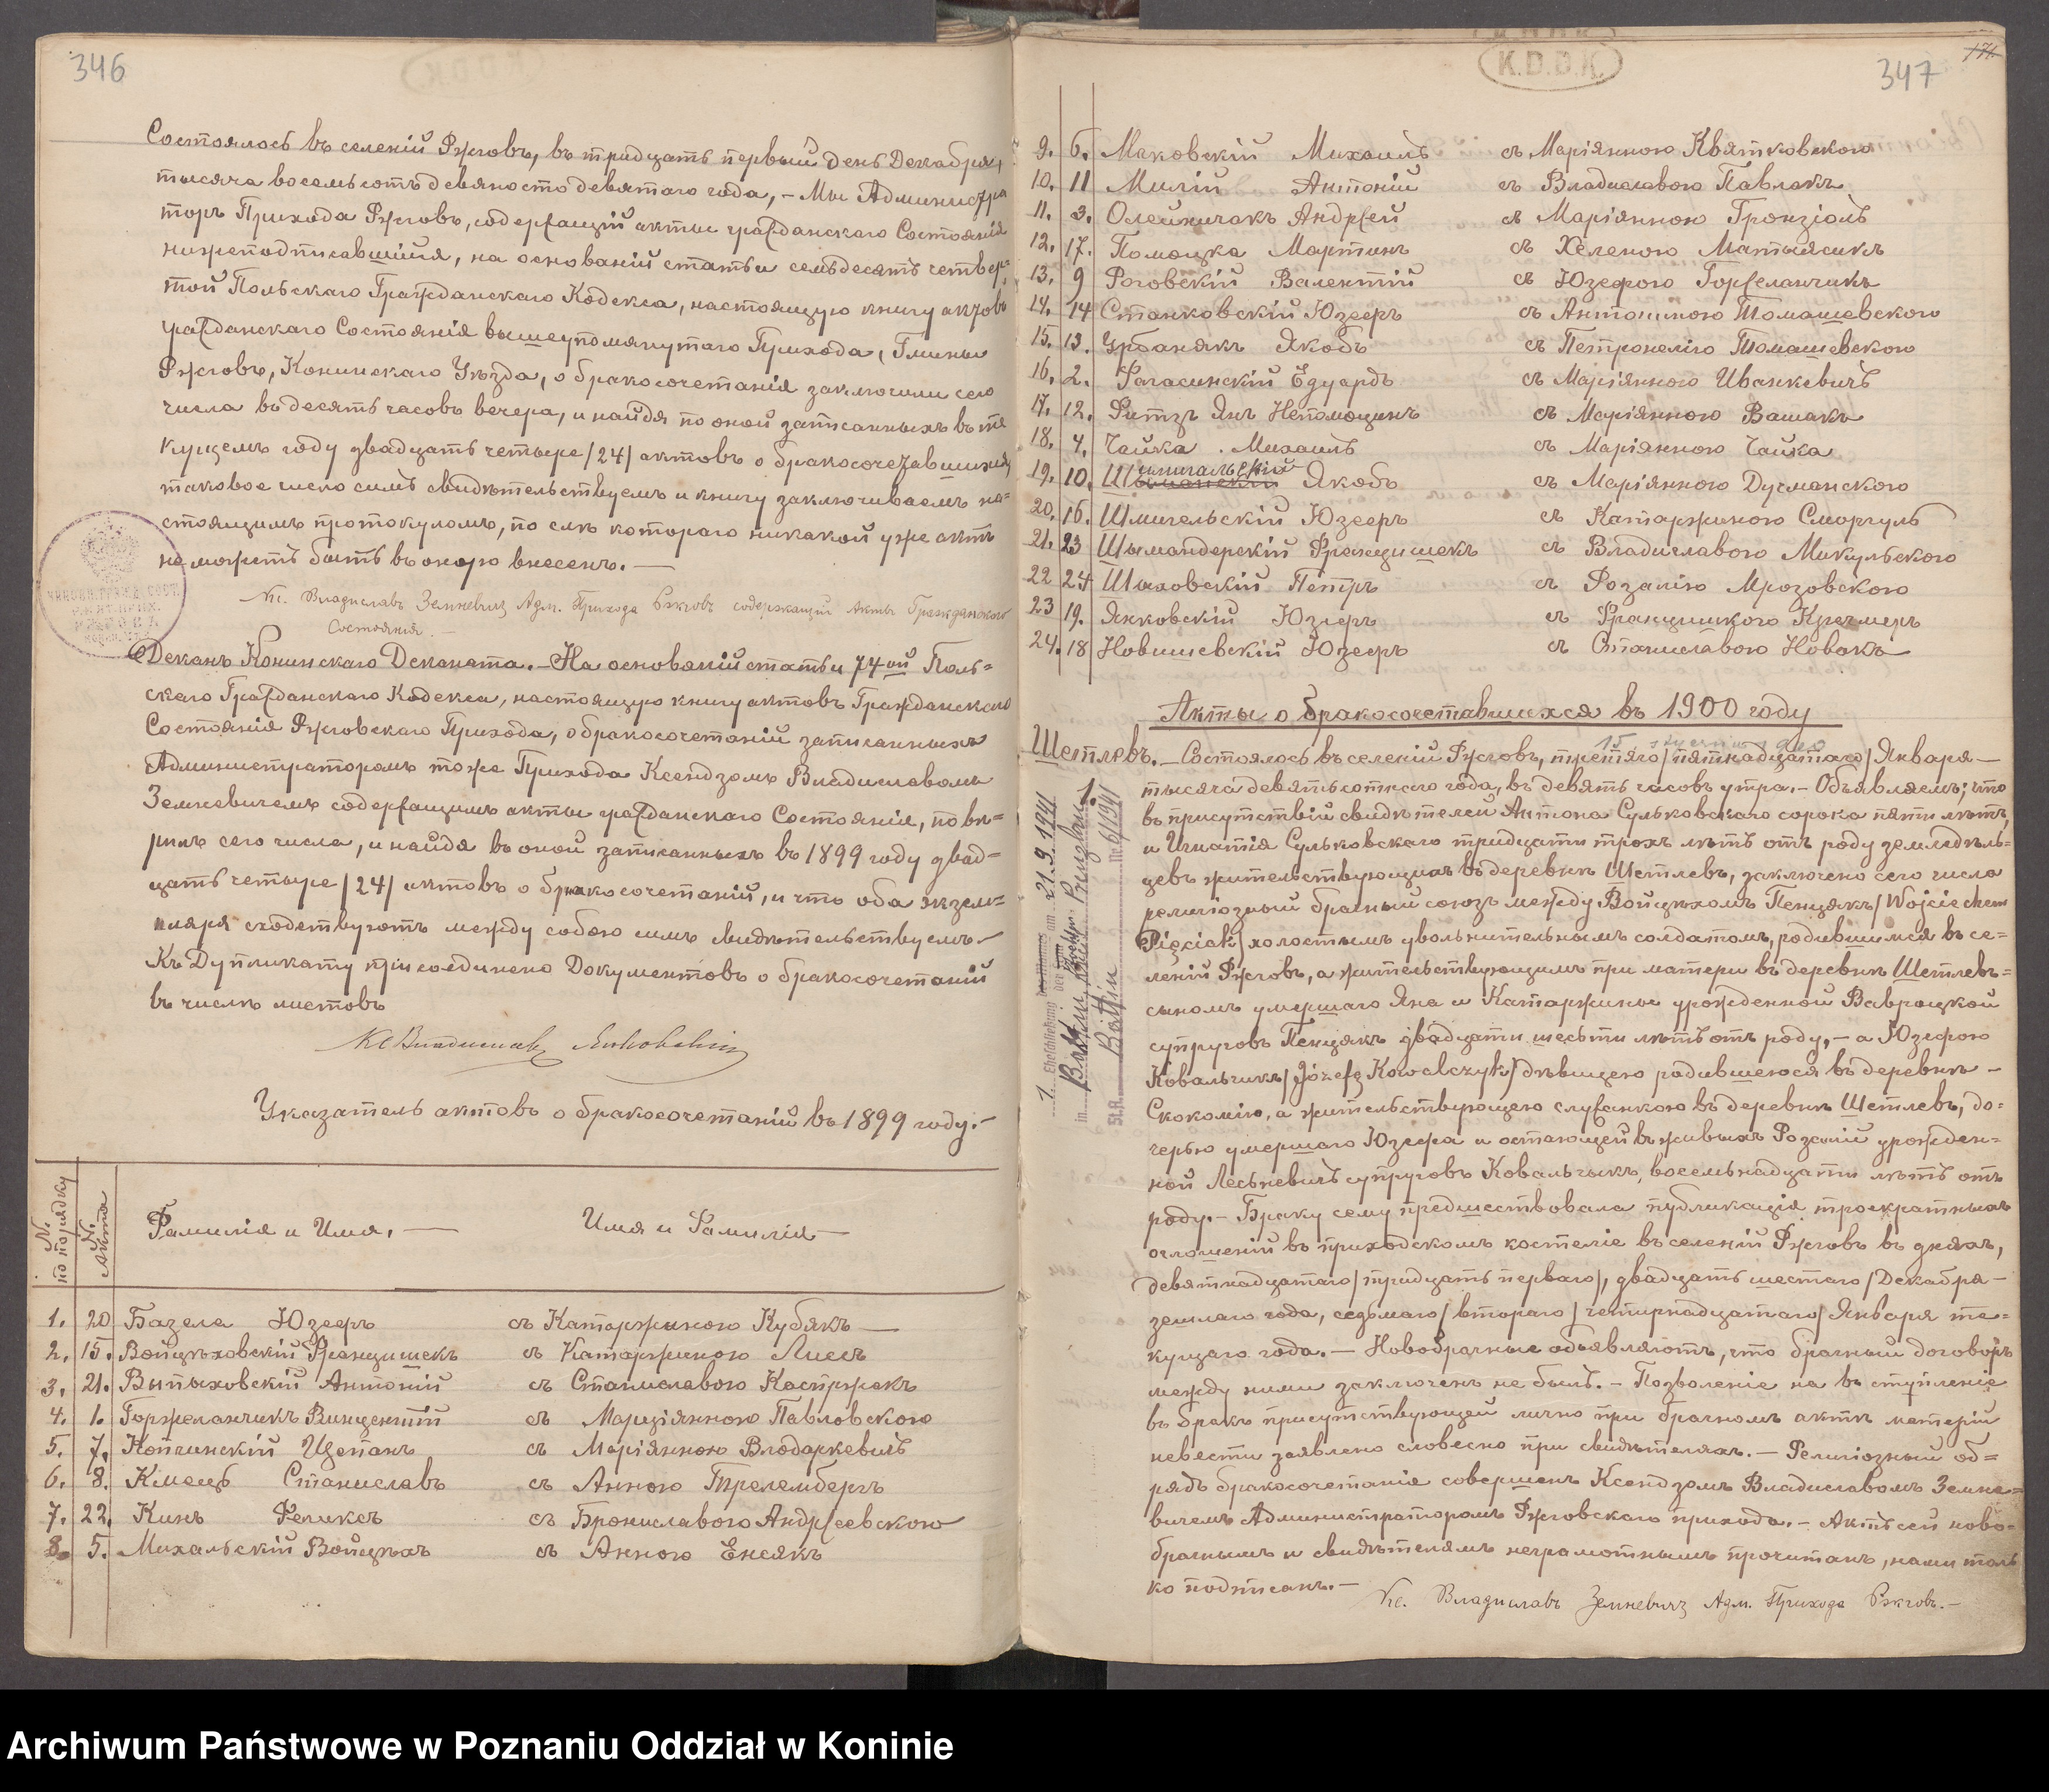 346
Состоялось въ селеніи Ржговъ, въ тридцать первый день Декабря,
тысяча восемьсотъ девяносто девятаго года, – Мы Администра
торъ Прихода Ржговъ, содержащій акты гражданскаго Состоянія
нижеподписавшійся, на основаніи статьи семьдесять четвер=
той Польскаго Гражданскаго Кодекса, настоящую книгу актовъ
гражданскаго Состоянія вышеупомянутаго Прихода, Гмины
Ржговъ, Конинскаго Уѣзда, о бракосочетанія заключили сего
числа въ десять часовъ вечера, и найдя по оной записанныхъ въ те
кущемъ году двадцать четыре /24/ актовъ о бракосочетавшихся
таковое число симъ свидѣтельствуемъ и книгу заключиваемъ на=
стоящимъ протокуломъ, по слѣ котораго никакой уже актъ
не можетъ быть въ оную внесенъ. —
Кс. Владиславъ Земкевичъ Адм. Прихода Ржговъ содержащій Акты Гражданскаго
Состоянія. —
Деканъ Конинскаго Деканата. – На основаніи статьи 74ой Поль=
скаго Гражданскаго Кодекса, настоящую книгу актовъ Гражданскаго
Состоянія Ржговскаго Прихода, о бракосочетаніи записанныхъ
Администраторомъ тоже Прихода Ксендзомъ Владиславомъ
Земкевичемъ содержащимъ акты гражданскаго Состоянія, повѣ=
рилъ сего числа, и найдя въ оной записанныхъ въ 1899 году двад=
цать четыре /24/ актовъ о бракосочетаніи, и что оба экзем=
пляра сходствуютъ между собою симъ свидѣтельствуемъ –
Къ Дупликату присоединено Документовъ о бракосочетаніи
въ числѣ листовъ
Кс Владиславъ
Указатель актовъ о бракосочетаніи въ 1899 году. –
N. по порядку N. Акта Фамилія и Имя. — Имя и Фамилія —
1. 20 Базела Юзефъ съ Катаржиною Кубякъ —
2. 15. Войцѣховскій Францишекъ съ Катаржиною Лисъ
3. 21. Выпыховскій Антоній съ Станиславою Каспржакъ
4. 1. Горжеланчикъ Винцентій съ Марціянною Павловскою
5. 7. Копчинскій Щепанъ съ Маріянною Влодаркевичъ
6. 8. Кмець Станиславъ съ Анною Трелембергъ
7. 22. Кинъ Феликсъ съ Брониславою Андржеевскою
8. 5. Михальскій Войцѣхъ съ Анною Енсякъ
K.D.D.K.
347
9. 6. Маковскій Михаилъ съ Маріянною Квятковскою
10. 11 Милій Антоній съ Владиславою Павлакъ
11. 3. Олейничакъ Андржей съ Маріянною Гронзіоль
12. 17. Помоцка Мартинъ съ Хеленою Матыясикъ
13. 9 Роговскій Валентій съ Юзефою Горжеланчикъ
14. 14 Станковскій Юзефъ съ Антониною Томашевскою
15. 13. Урбанякъ Якобъ съ Петронелію Томашевскою
16. 2. Фагасинскій Едуардъ съ Маріянною Иванкевичъ
17. 12. Фитзъ Янъ Непомоцинъ съ Маріянною Вашакъ
18. 4. Чайка Михаилъ съ Маріянною Чайка
19. 10. Якобъ съ Маріянною Дусманскою
20. 16. Шмигельскій Юзефъ съ Катаржиною Сморгуль
21. 23 Шымандерскій Францишекъ съ Владиславою Микульскою
22 24 Шаховскій Петръ съ Розалію Мрозовскою
23 19. Янковскій Юзефъ съ Францишкою Кречмеръ
24. 18 Новишевскій Юзефъ съ Станиславою Новакъ
Акты о бракосочетавшихся въ 1900 году
Щетлевъ. – Состоялось въ селеніи Ржговъ, третяго /пятнадцатаго/ Января –
1.
тысяча девятьсотнаго года, въ девять часовъ утра. – Объявляемъ; что
въ присутствіи свидѣтелей Антона Сульковскаго сорока пяти лѣтъ,
и Игнатія Сульковскаго тридцати трохъ лѣтъ отъ роду земледѣль=
цевъ жительствующихъ въ деревнѣ Щетлевъ, заключено сего числа
религіозный брачный союзъ между Войцѣхомъ Пенцякъ /Wojciechem
Pięciak/ холостымъ увольнительнымъ солдатомъ, родившимся въ се=
леніи Ржговъ, а жительствующимъ при матери въ деревнѣ Щетлевъ=
сыномъ умершаго Яна и Катаржины урожденной Вавроцкой
супруговъ Пенцякъ двадцати шести лѣтъ отъ роду, – а Юзефою
Ковальчикъ /Józefą Kowalczyk/ дѣвицею родившеюся въ деревнѣ –
Скокомію, а жительствующею служанкою въ деревнѣ Щетлевъ, до=
черью умершаго Юзефа и остающей въ живыхъ Розаліи урожден=
ной Лесьневичъ супруговъ Ковальчыкъ, восемьнадцати лѣтъ отъ
роду. – Браку сему предшествовала публикація троекратныхъ
оглошеній въ приходскомъ костеліе въ селеніи Ржговъ въ дняхъ,
девятнадцатаго /тридцать перваго/, двадцать шестаго /Декабря –
зешлаго года, седьмаго/ втораго /четырнадцатаго/ Января те=
кущаго года. — Новобрачные объявляютъ, что брачный договоръ
между ними заключенъ не былъ. – Позволеніе на въ ступленіе
въ бракъ присутствующей лично при брачномъ актѣ матерій
невести заявлено словесно при свидѣтеляхъ. — Религіозный об=
рядъ бракосочетаніе совершенъ Ксендзомъ Владиславомъ Земке=
вичемъ Администраторомъ Ржговскаго прихода. – Актъ сей ново=
брачнымъ и свидѣтелямъ неграмотнымъ прочитанъ, нами толь
ко подписанъ. –
Кс. Владиславъ Земкевичъ Адм. Прихода Ржговъ. –
1. Eheschließung am 21.9.1941
St.A. Nr. 6/1941
Archiwum Państwowe w Poznaniu Oddział w Koninie